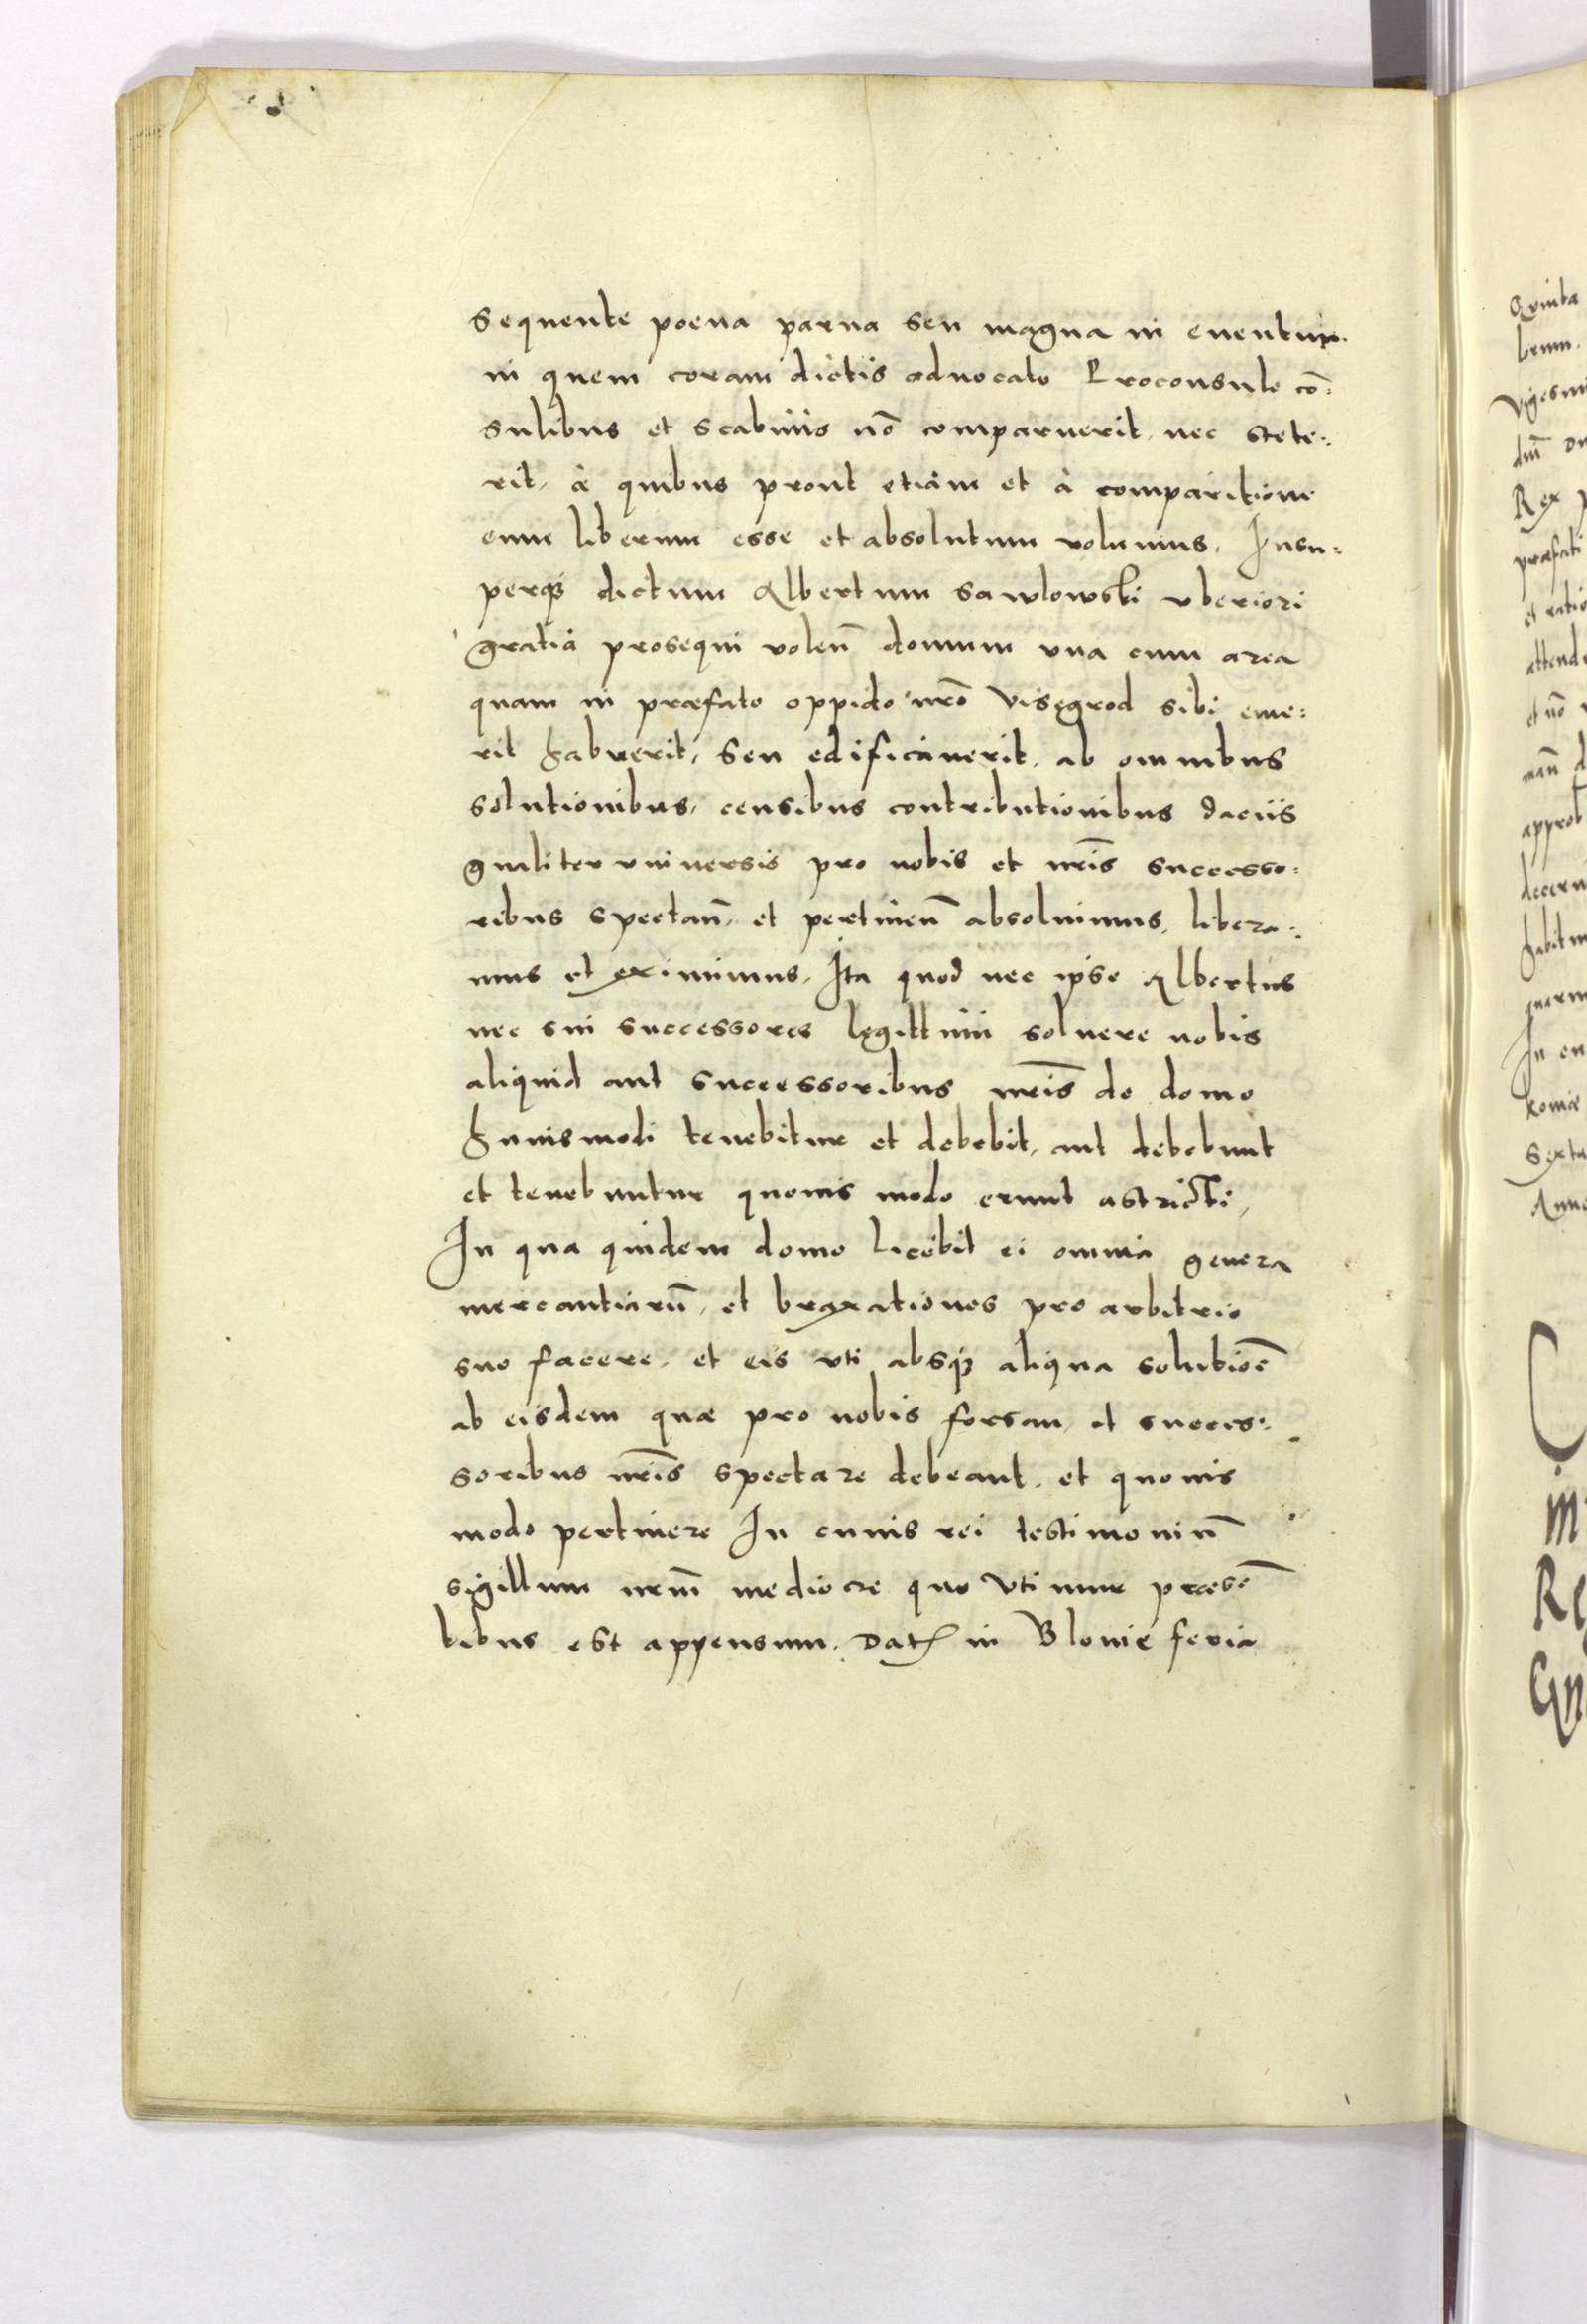 sequente poena parua seu magna in euentum
in quem coram dictis aduocato Proconsule cō:
sulibus et scabinis nō comparuerit, nec stete:
rit, à quibus prout etiam et à comparitione
eum liberum esse et absolutum volumus. Insu:
perq3 dictum Albertum Sawlowski vberiori
gratia prosequi volen̄ domum vna cum area
quam in præfato oppido nr̄o Visegrod sibi eme:
rit habuerit, seu edificauerit, ab omnibus
solutionibus, censibus contributionibus daciis
gn̄aliter vniuersis pro nobis et nr̄is successo:
ribus spectan̄, et pertinen̄ absoluimus, libera:
mus et eximimus, Ita quod nec ipse Albertus
nec sui successores legittimi soluere nobis
aliquid aut successoribus nr̄is de domo
huiusmodi tenebitur et debebit, aut debebunt
et tenebuntur quouis modo erunt astricti,
In qua quidem domo licebit ei omnia genera
mercantiarū, et braxationes pro arbitrio
suo facere, et eis vti absq3 aliqua solutiōe
ab eisdem quæ pro nobis forsan, et succes:
soribus nr̄is spectare debeant, et quouis
modo pertinere In cuius rei testimoniū
sigillum nrm̄ mediocre quo vtimur præsē
tibus est appensum. Dat in Blonie feria
Quinta
Rex
præfati
et ratio
attend
et nō
approb
habitu
In cu
Sexta
Anno